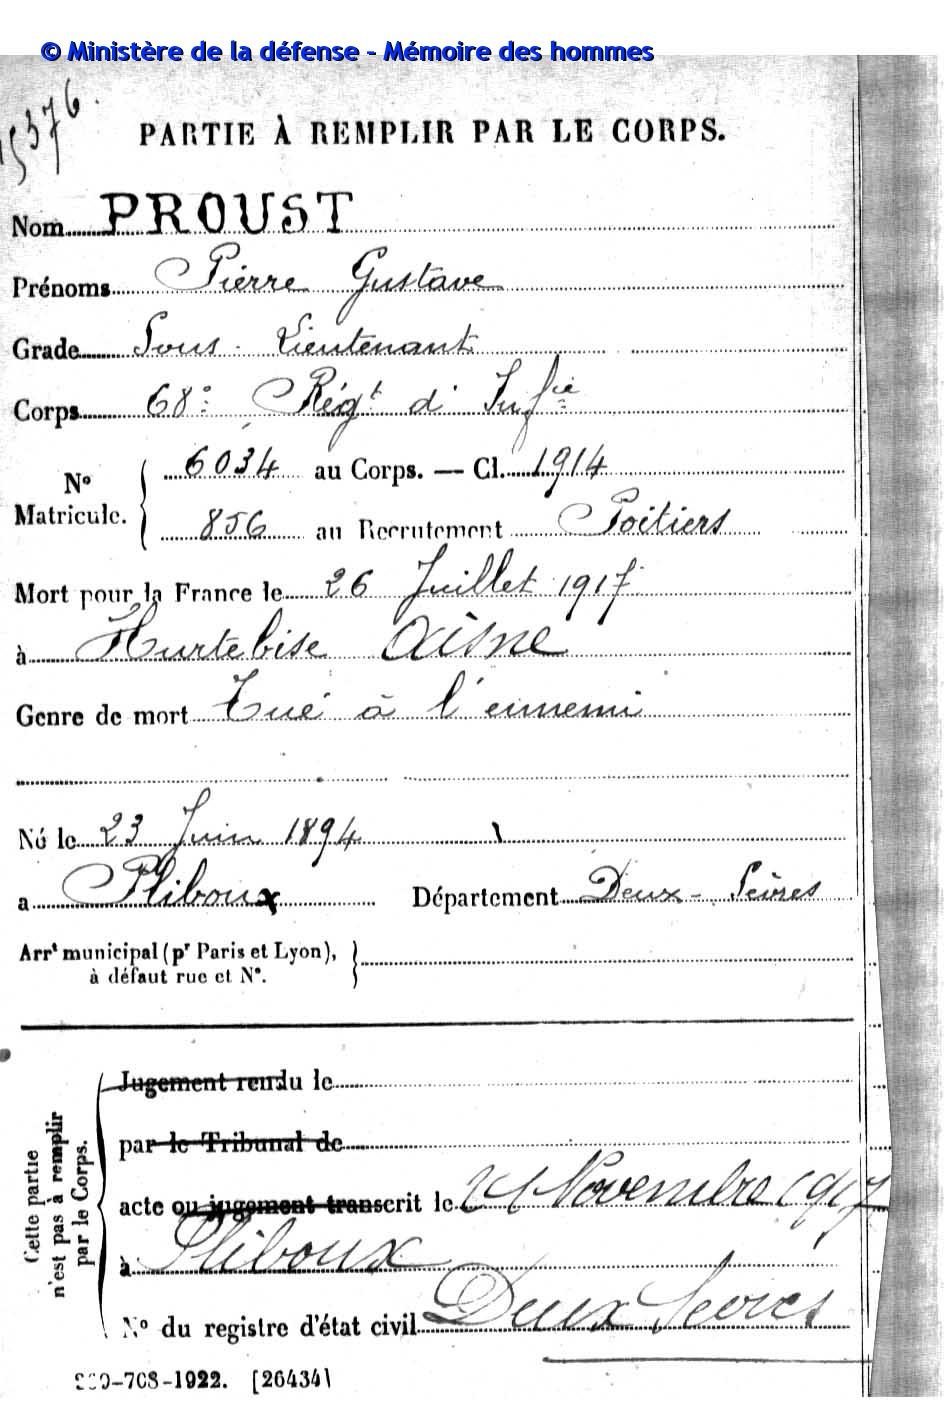 © Ministère de la défense - Mémoire des hommes
15376.
PARTIE À REMPLIR PAR LE CORPS.
Nom PROUST
Prénoms Pierre Gustave
Grade Sous-Lieutenant
Corps 68e Régt d'Infie
No Matricule. 6034 au Corps. — Cl. 1914
856 au Recrutement Poitiers
Mort pour la France le 26 Juillet 1917
à Hurtebise Aisne
Genre de mort Tué à l'ennemi
Né le 23 Juin 1894
à Pliboux Département Deux-Sèvres
Arrt municipal (pr Paris et Lyon),
à défaut rue et No.
Cette partie n'est pas à remplir par le Corps.
Jugement rendu le
par le Tribunal de
acte ou jugement transcrit le Novembre 1917
à Pliboux
Deux Sèvres
No du registre d'état civil
-708-1922. [26434]